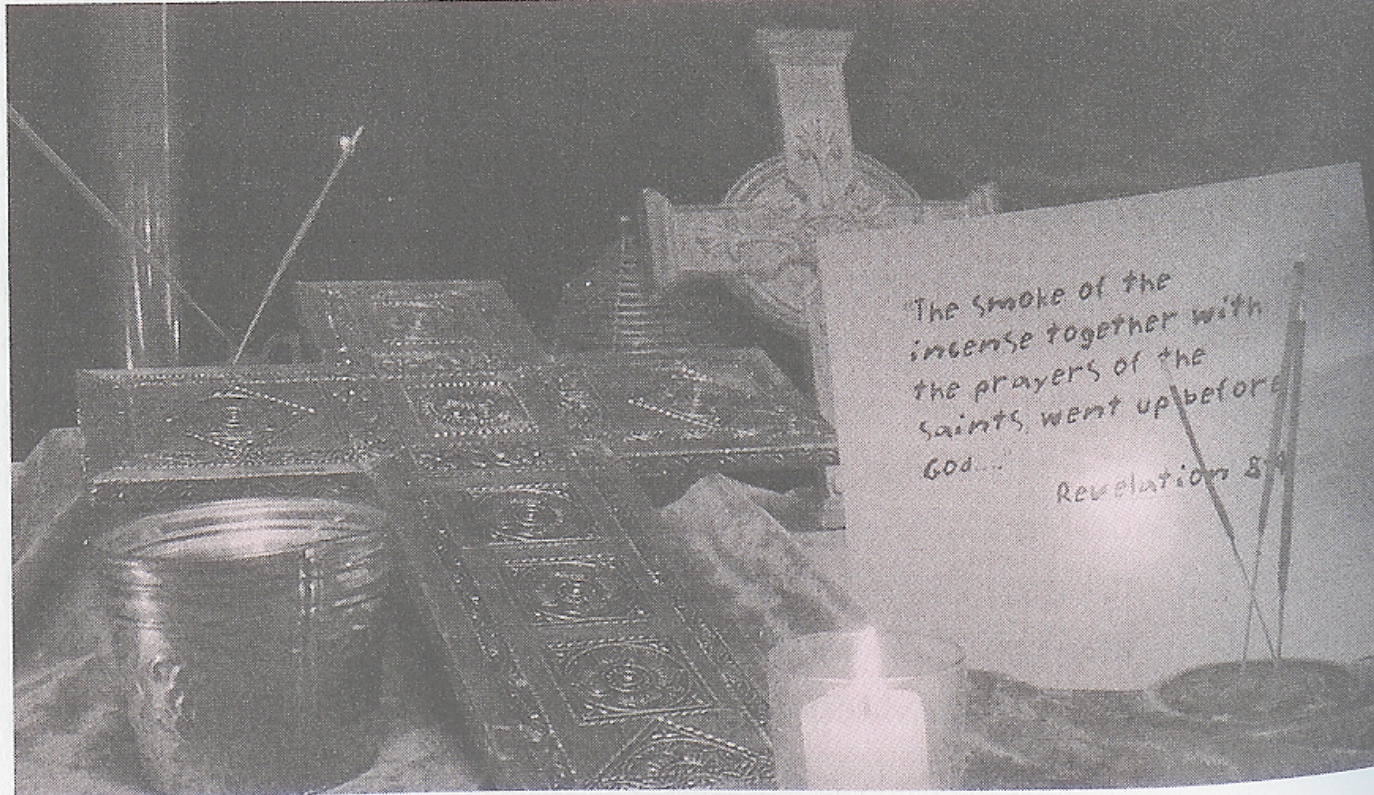 "The smoke of the
incense together with
the prayers of the
saints, went up before
God...."
Revelation 8:4